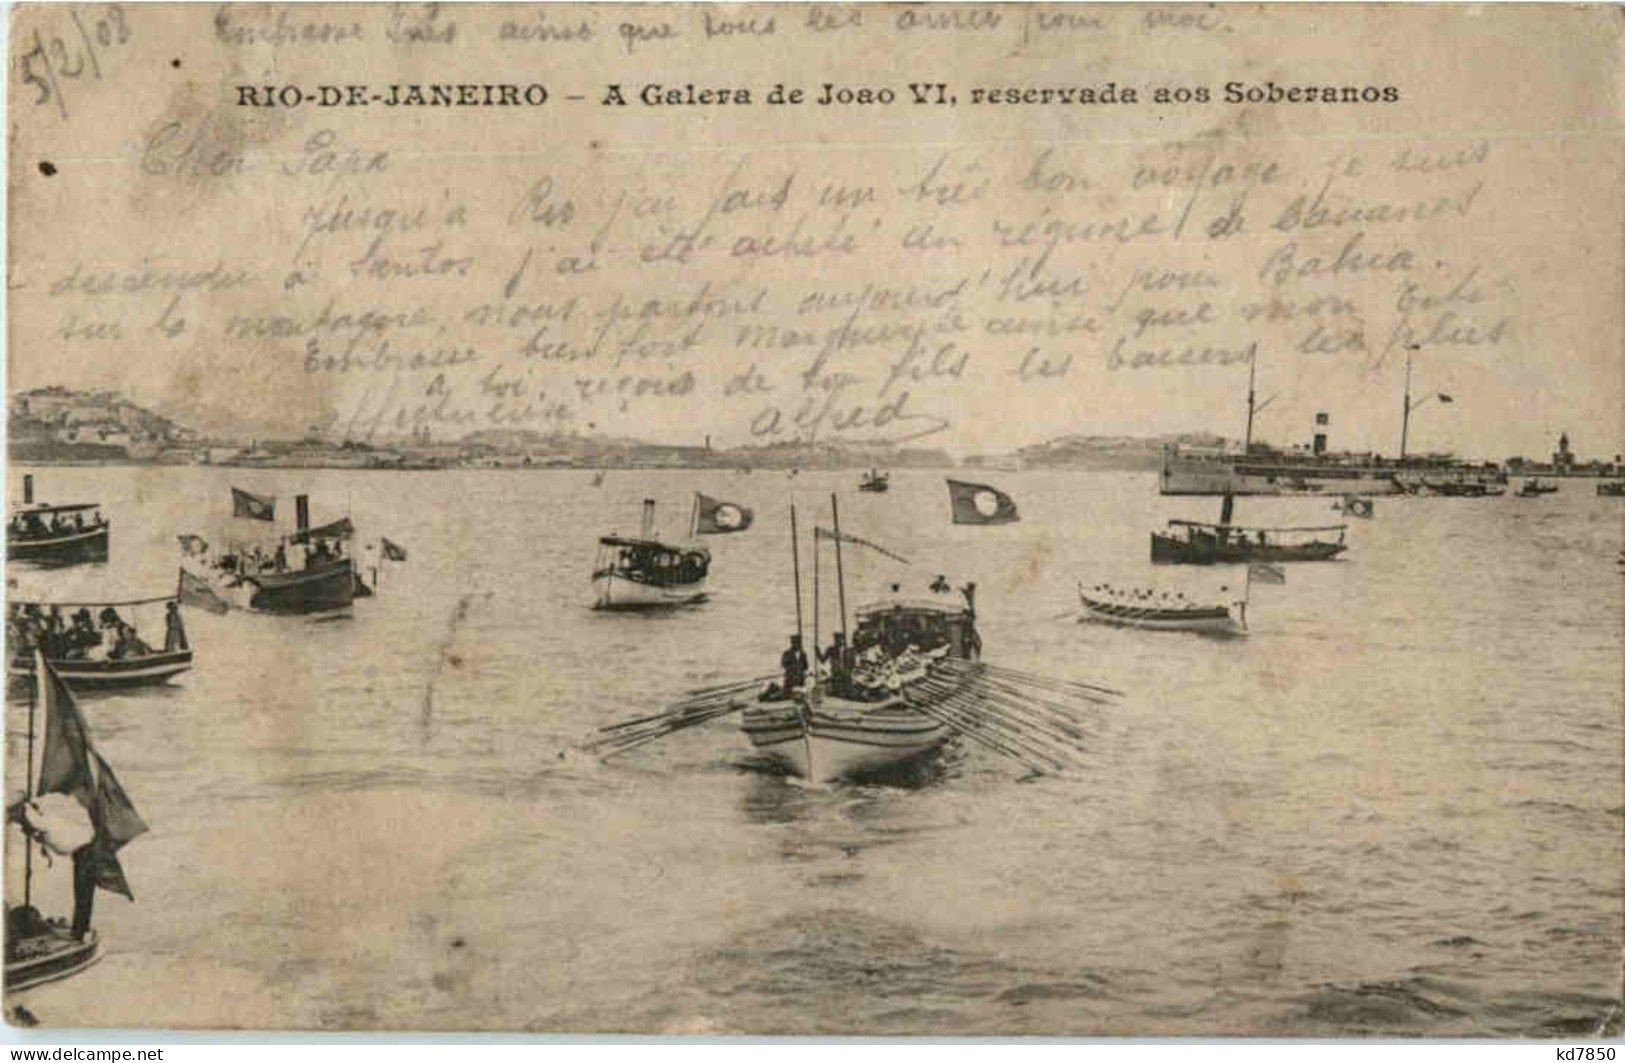 5/2/08
Embrasse Inès ainsi que tous les amies pour moi.
RIO-DE-JANEIRO – A Galera de Joao VI, reservada aos Soberanos
Cher Papa
Jusqu'à Rio j'ai fait un très bon voyage, je suis
descendu à Santos j'ai été acheté un régime de bananes
sur la montagne, nous partons aujourd'hui pour Bahia.
Embrasse bien fort Marguerite ainsi que mon
à toi, reçois de ton fils les baisers les plus
affectueux. Alfred
www.delcampe.net
kd7850